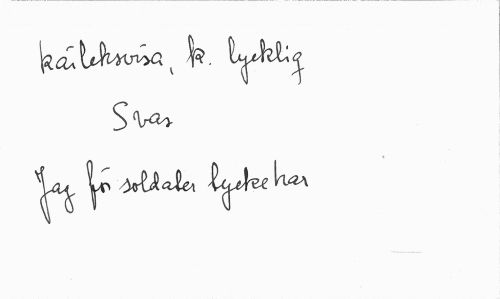 kärleksvisa, k. lycklig
Svar
Jag för soldater tycke har